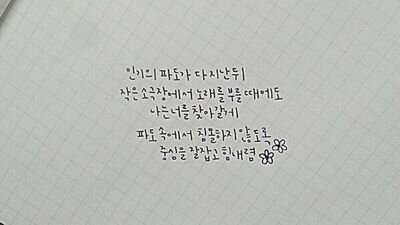 인기의 파도가 다 지난 뒤
작은 소극장에서 노래를 부를 때에도
나는 너를 찾아갈게
파도 속에서 침몰하지 않도록
중심을 잘 잡고 힘내렴